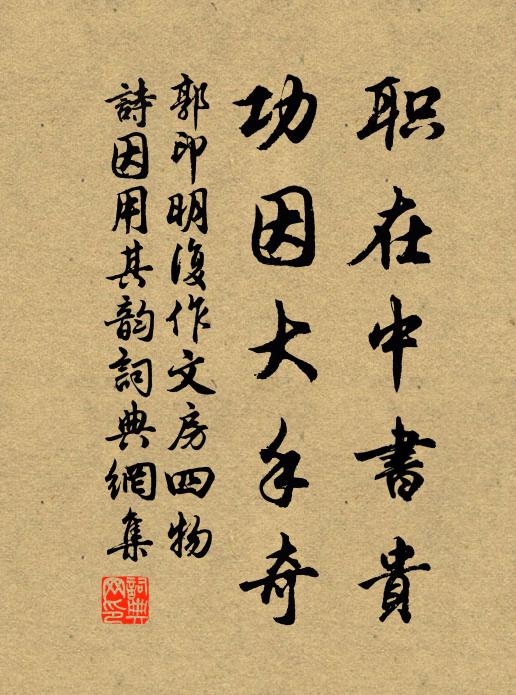 职在中書貴
功因大手奇
郭印明復作文房四物
詩因用其韵詞典網集